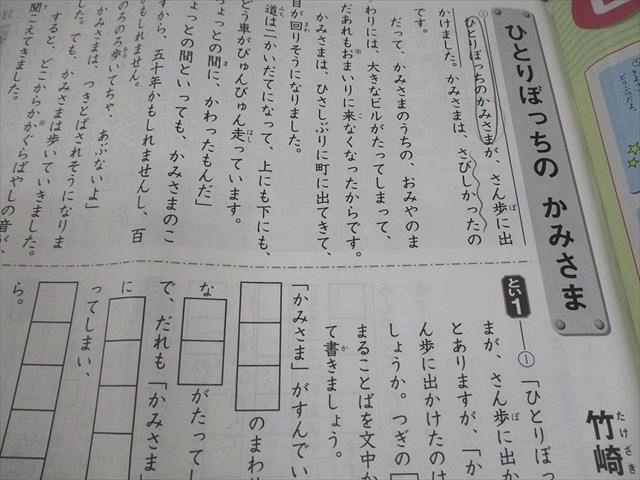 ひとりぼっちの かみさま
竹崎
たけざき
①
ひとりぼっちのかみさまが、さん歩に出
かけました。かみさまは、さびしかったの
です。
だって、かみさまのうちの、おみやのま
わりには、大きなビルがたってしまって、
だあれもおまいりに来なくなったからです。
かみさまは、ひさしぶりに町に出てきて、
目が回りそうになりました。
道は二かいだてになって、上にも下にも、
どう車がびゅんびゅん走っています。
ょっとの間に、かわったもんだ」
ょっとの間といっても、かみさまのこ
すから、五十年かもしれませんし、百
もしれません。
のろのろ歩いてちゃ、あぶないよ」
かみさまは、つきとばされそうになりま
した。でも、かみさまは歩いていきました。
すると、どこからかかぐらばやしの音が、
聞こえてきました。
とい1
① 「ひとりぼっ
まが、さん歩に出か
とありますが、「か
ん歩に出かけたのは
しょうか。つぎの
まることばを文中か
て書きましょう。
「かみさま」がすんでい
のまわ
な
がたって
で、だれも「かみさま」
に
ってしまい、
ら。